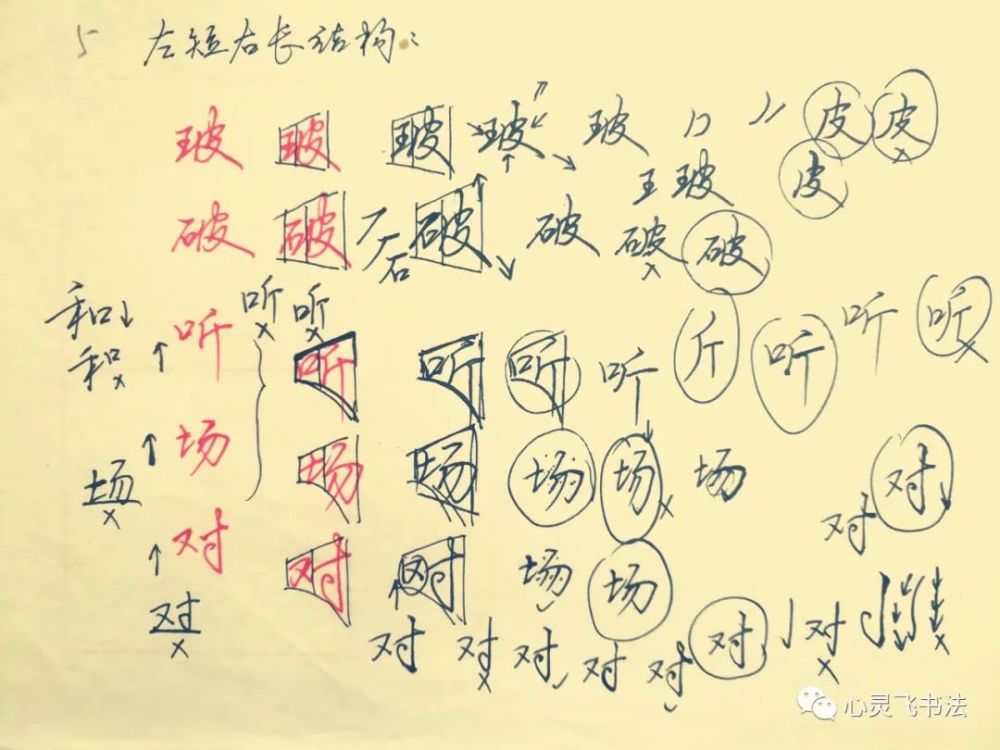 5 左短右长结构:
玻 玻 玻 玻 玻 皮 皮
王 玻 皮
破 破 石 破 破 破 破
和 听 听 听
积 听 听 听 听 斤 听 听 听
场 场 场 场 场 场 场
对 对 对 对 场 场 对 对
对 对 对 对 对 对 对 对
心灵飞书法